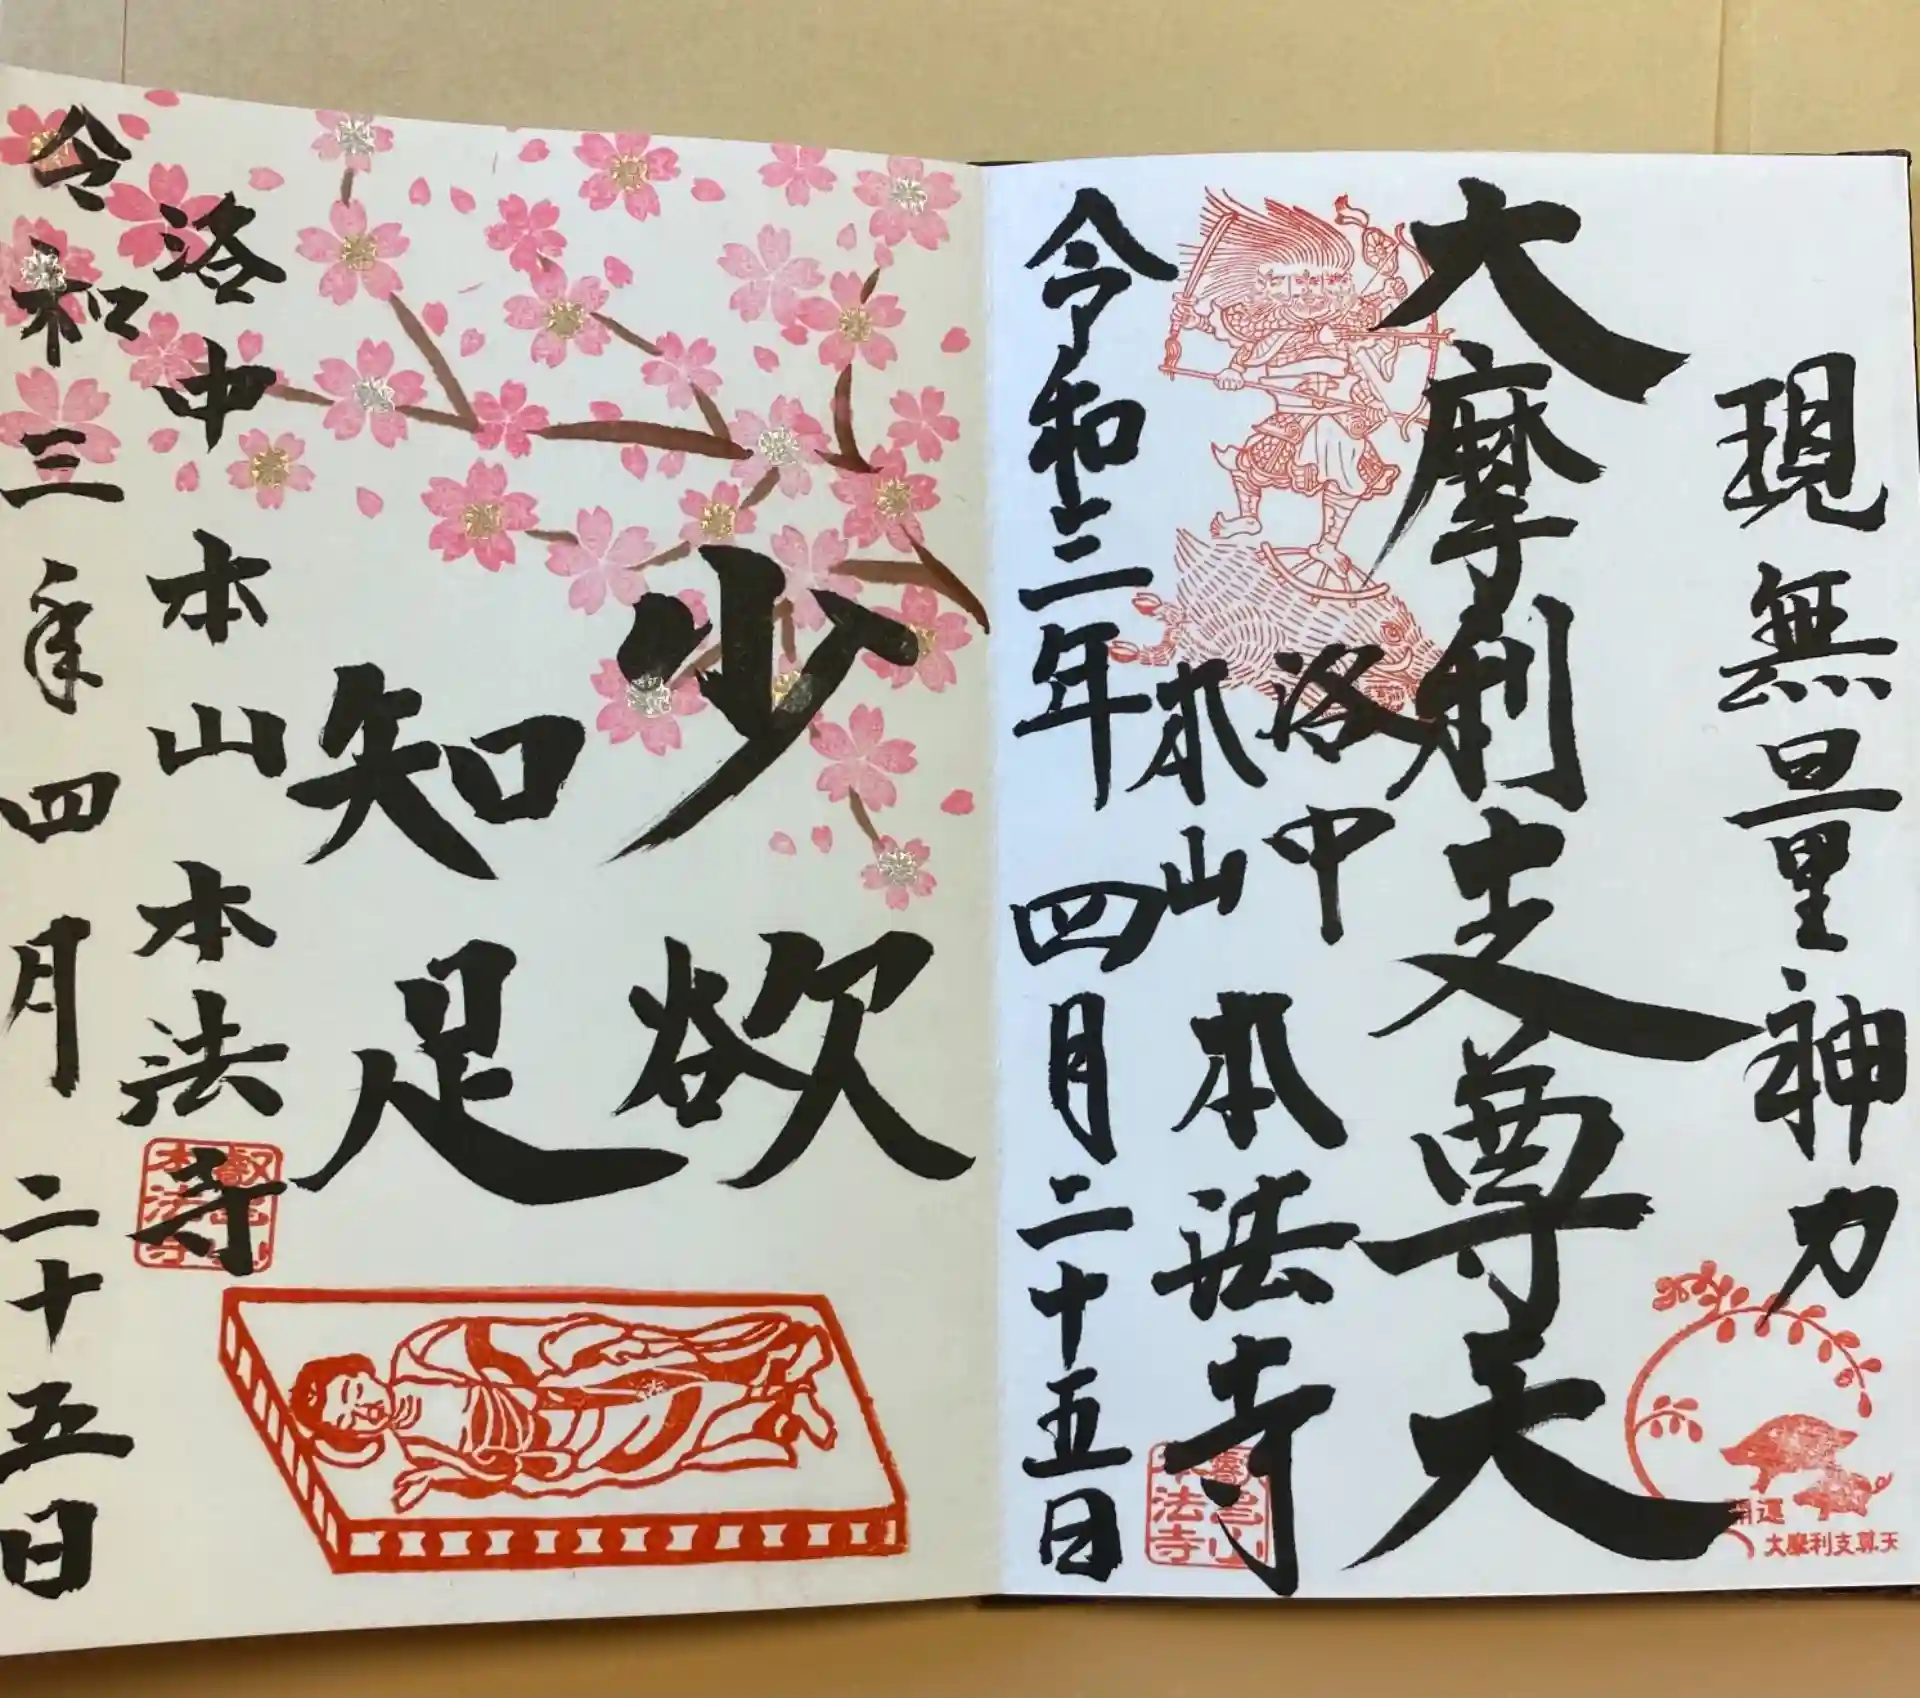 現無量神力
大摩利支尊天
洛中
本山
本法寺
令和三年四月二十五日
開運
大摩利支尊天
叡昌山
本法寺
少欲
知足
洛中本山本法寺
令和三年四月二十五日
叡昌山
本法寺